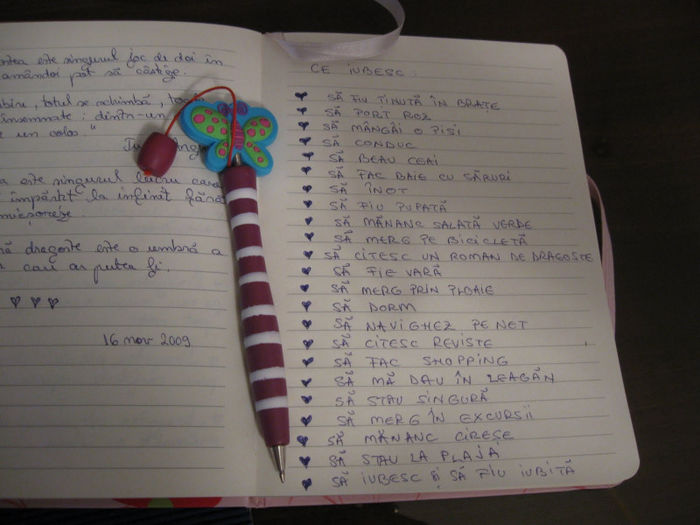 este singurul joc de doi în
amândoi pot să câștige.
iubire, totul se schimbă, toate
însemnate: dintr-un
e un colos."
a este singurul lucru care
împărțit la infinit fără
micșoreze.
dragoste este o umbră a
cari ar putea fi.
16 nov 2009
CE IUBESC:
SĂ FIU ȚINUTĂ ÎN BRAȚE
SĂ PORT ROZ
SĂ MÂNGÂI O PISI
SĂ CONDUC
SĂ BEAU CEAI
SĂ FAC BAIE CU SĂRURI
SĂ ÎNOT
SĂ FIU PUPATĂ
SĂ MĂNANC SALATĂ VERDE
SĂ MERG PE BICICLETĂ
SĂ CITESC UN ROMAN DE DRAGOSTE
SĂ FIE VARĂ
SĂ MERG PRIN PLOAIE
SĂ DORM
SĂ NAVIGHEZ PE NET
SĂ CITESC REVISTE
SĂ FAC SHOPPING
SĂ MĂ DAU ÎN LEAGĂN
SĂ STAU SINGURĂ
SĂ MERG ÎN EXCURSII
SĂ MĂNANC CIREȘE
SĂ STAU LA PLAJA
SĂ IUBESC ȘI SĂ FIU IUBITĂ